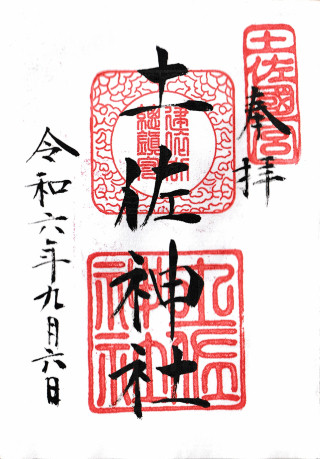 奉拝
土佐國一宮
土佐神社
土佐神社
令和六年九月六日